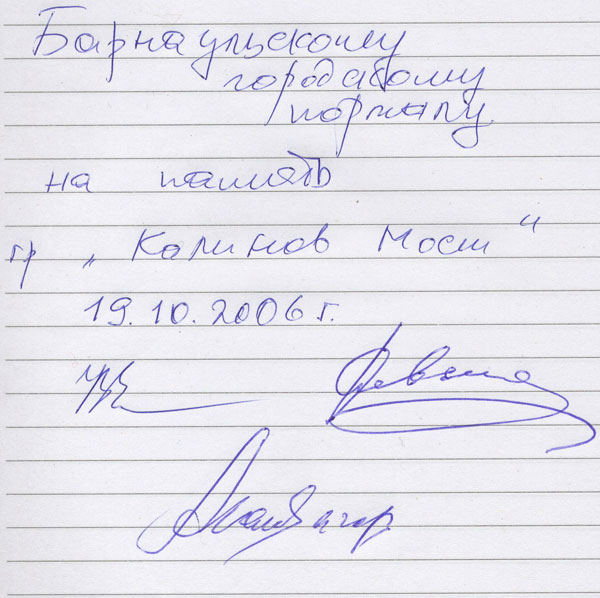 Барнаульскому
городскому
порталу.
на память
гр „Калинов Мост“
19.10.2006 г.